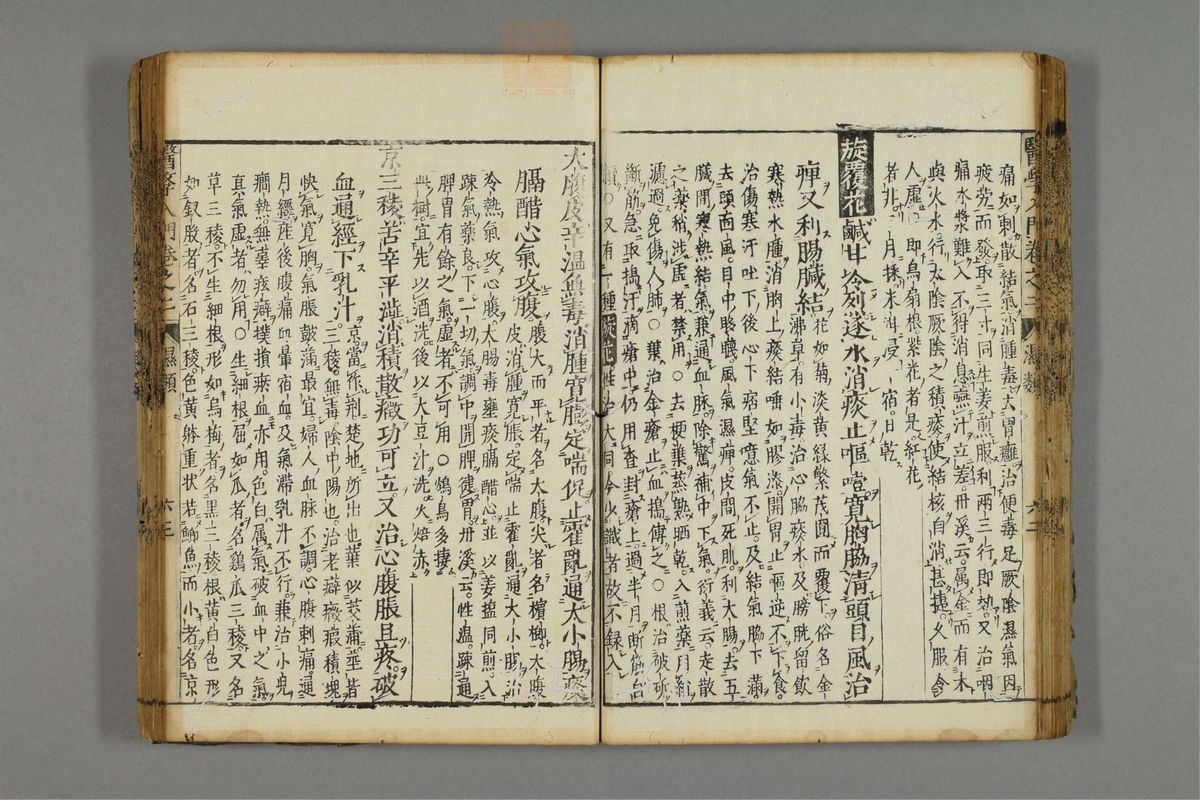 醫學入門卷之二 濕類 六十二
痛如刺散結氣消腫毒太胃癰治便毒足厥陰濕氣因
疲勞而發取三寸同生姜煎服利兩三行即効又治咽
痛水漿難入不狩消息嚥汁立差丹溪云属金而有木
與火水行太陰厥陰之積痰使結核自消甚捷久服令
人虛即烏扇根紫花者是紅花
者非三月採米泔浸一宿日乾
旋覆花鹹甘冷烈逐水消痰止嘔噎寬胸脇清頭目風治
痺又利腸臟結花如菊淡黃綠繁茂圓而覆下俗名金
沸草有小毒治心脇痰水及膀胱留飲
寒熱水腫消胸上痰結唾如膠漆開胃止嘔逆不下食
治傷寒汗吐下後心下痞堅噫氣不止及結氣脇下滿
去頭面風目中眵䁾風氣濕痺皮間死肌利大腸去五
臟間寒熱結氣兼通血脉除驚補中下氣衍義云走散
之藥稍涉虛者禁用○去梗葉蒸熟晒乾入煎藥用絹
濾過免傷人肺○葉治金瘡止血搗傅之○根治破斫
斷筋急取搗汗滴瘡中仍用查封瘡上過半月斷筋自
續○又有一種旋花性治大同今少識者故不錄入
大腹皮辛溫無毒消腫寬膨定喘促止霍亂通大小腸痰
膈醋心氣攻腹腹大而平者名大腹尖者名檳榔大腹
皮消腫寬脹定喘止霍亂通大小腸治
冷熱氣攻心腹大腸毒壅痰膈醋心並以姜塩同煎入
踈氣藥良下一切氣調中開脾健胃丹溪云性温踈通
脾胃有餘之氣虛者不可用○鴆鳥多棲
此樹宜先以酒洗後以大豆汁洗火焙
京三稜苦辛平澁消積散癥功可立又治心腹脹且疼破
血通經下乳汁京當作荆楚地所出也葉似莎草莖皆
三稜無毒陰中陽也治老癖癥瘕積塊
快氣寬胸氣脹皷滿最宜婦人血脉不調心腹刺痛通
月經産後腹痛血暈宿血及氣滯乳汁不行兼治小兒
癇熱無辜痃癖撲損瘀血亦用色白属氣破血中之氣
真氣虛者勿用○生細根屈如瓜者名鷄瓜三稜又名
草三稜不生細根形如烏梅者名黑三稜根黃白色形
如釵股者名石三稜色黃躰重状若鯽魚而小者名京
醫學入門卷之二 濕類 六十三